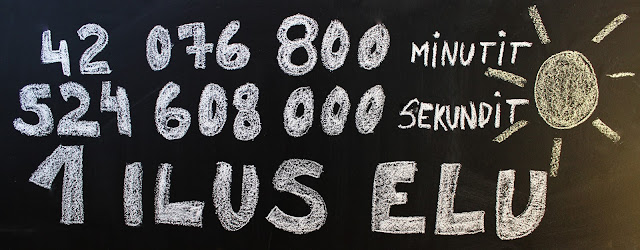 42 076 800 MINUTIT
524 608 000 SEKUNDIT
1 ILUS ELU